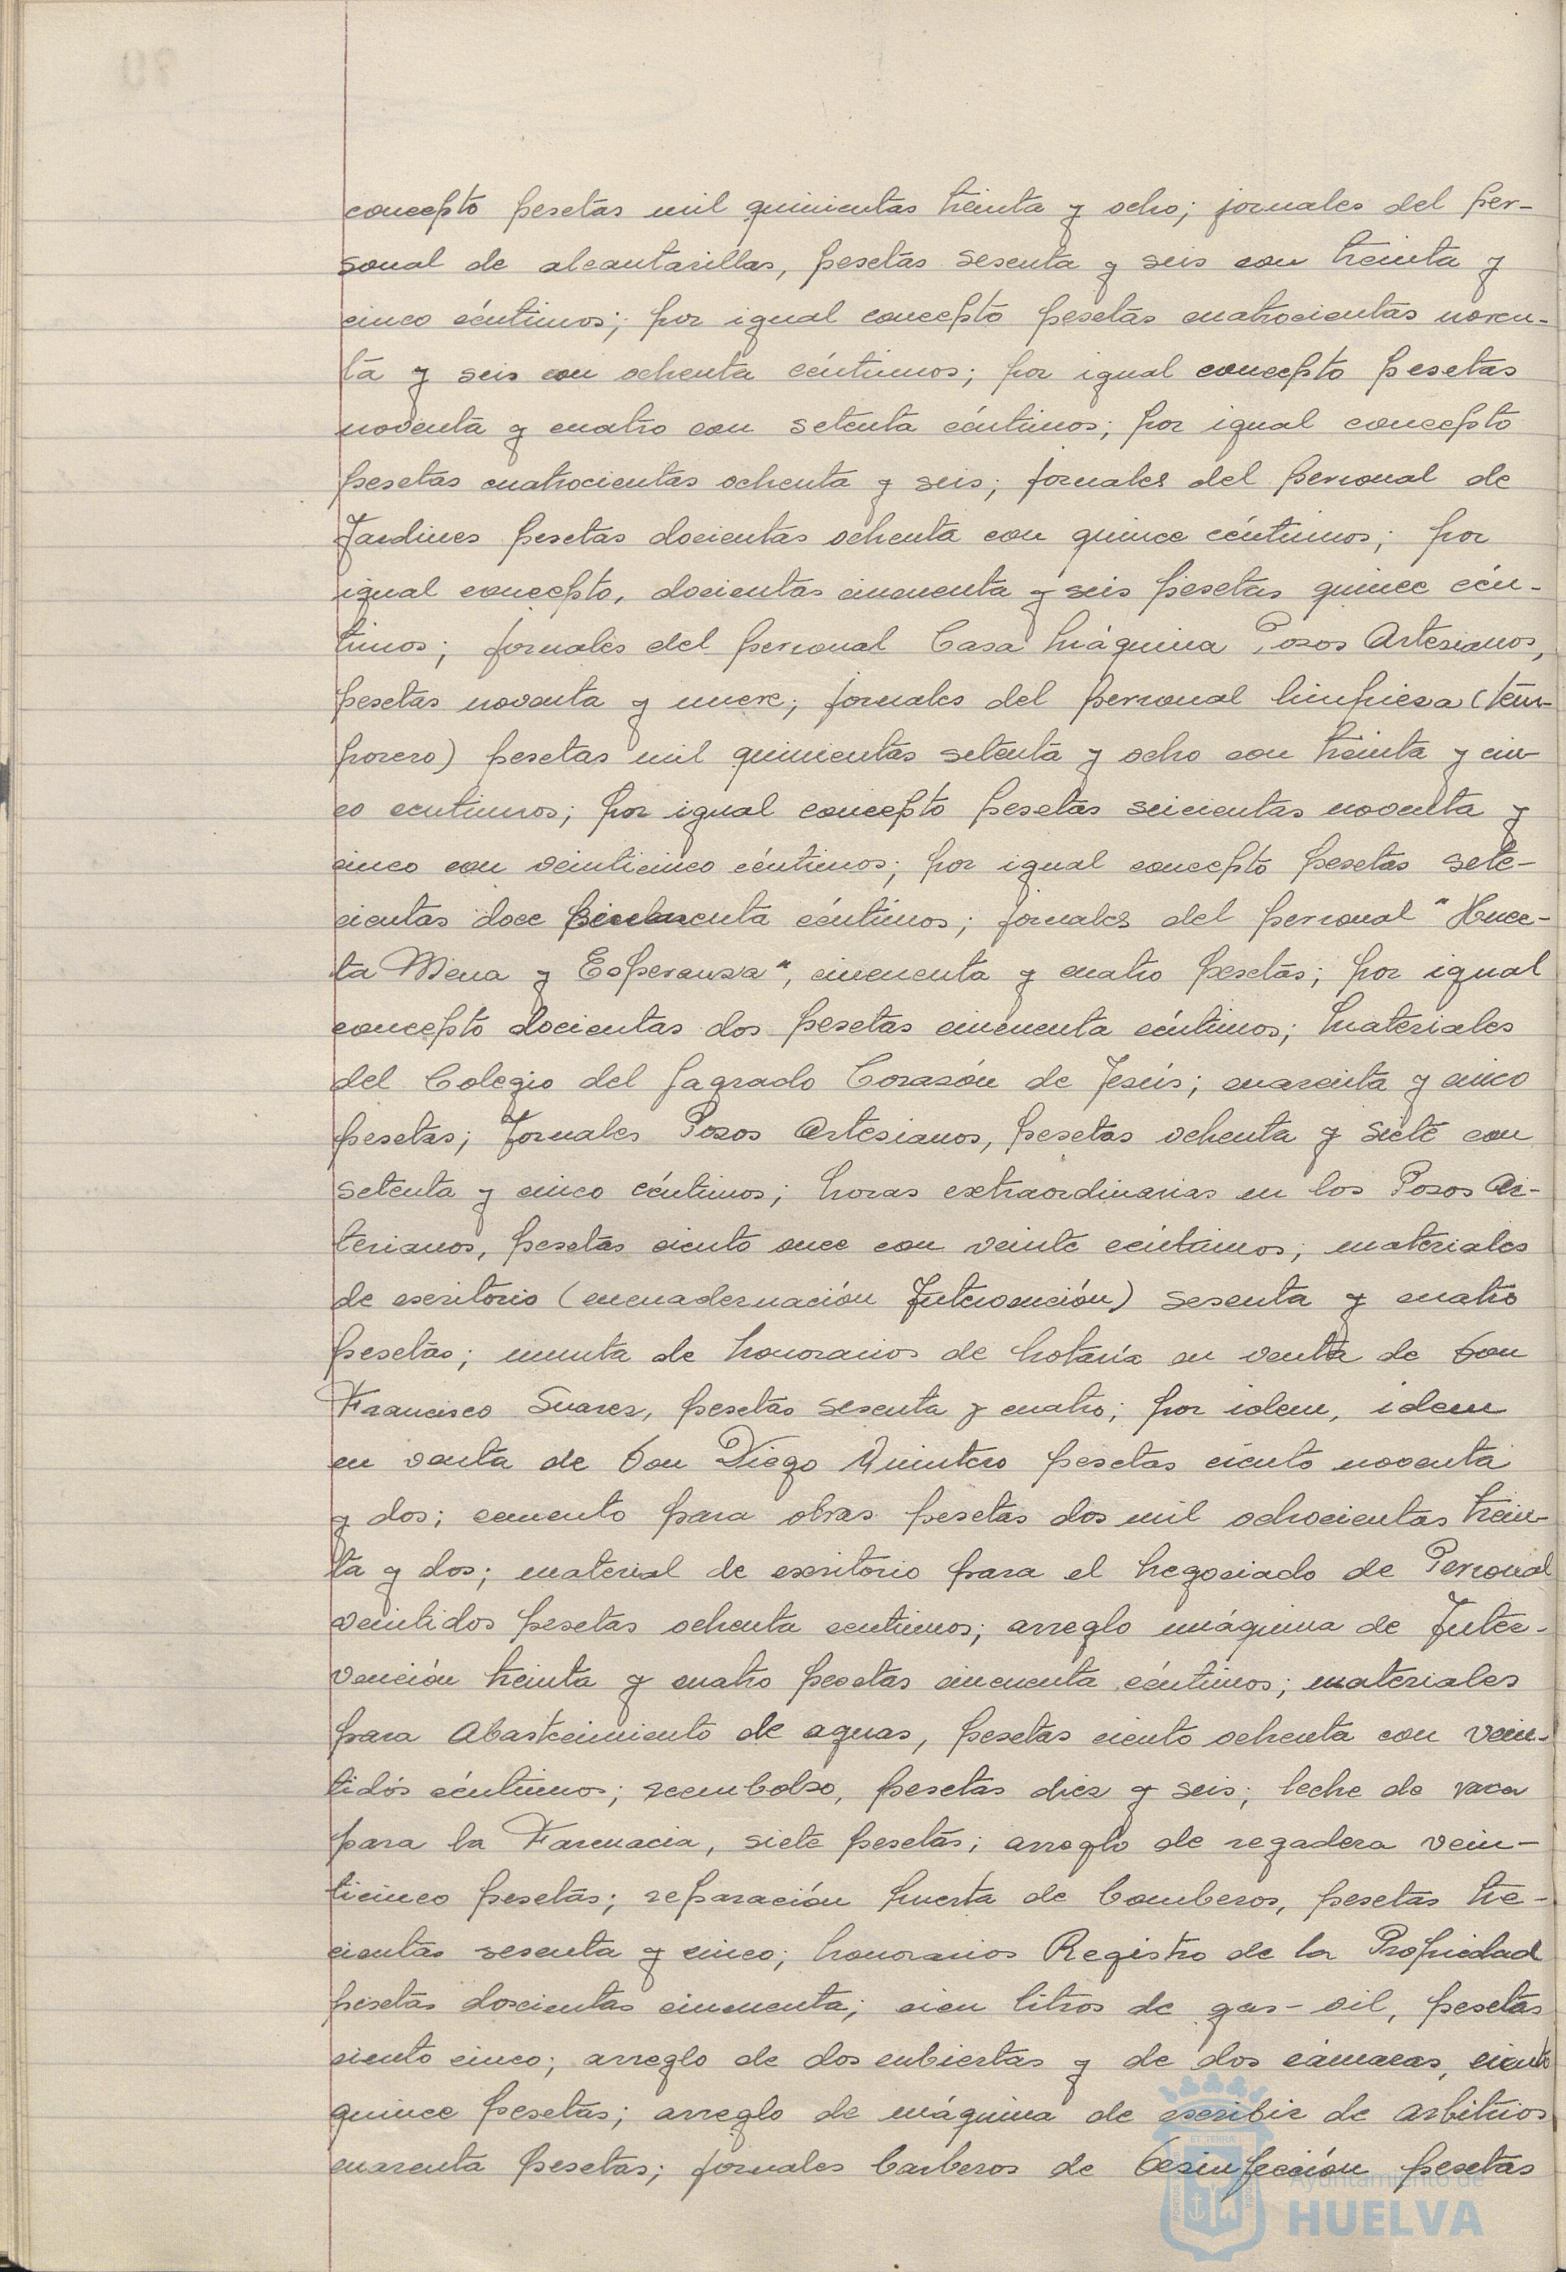 concepto pesetas mil quinientas treinta y ocho; jornales del per-
sonal de alcantarillas, pesetas sesenta y seis con treinta y
cinco céntimos; por igual concepto pesetas cuatrocientas noven-
ta y seis con ochenta céntimos; por igual concepto pesetas
noventa y cuatro con setenta céntimos; por igual concepto
pesetas cuatrocientas ochenta y seis; jornales del personal de
Jardines pesetas docientas ochenta con quince céntimos; por
igual concepto, docientas cincuenta y seis pesetas quince cén-
timos; jornales del personal Casa Máquina Pozos Artesianos,
pesetas noventa y nueve; jornales del personal limpieza (tem-
porero) pesetas mil quinientas setenta y ocho con treinta y cin-
co centimos; por igual concepto pesetas seicientas noventa y
cinco con veinticinco céntimos; por igual concepto pesetas sete-
cientas doce cincuenta céntimos; jornales del personal "Huer-
ta Mena y Esperanza", cincuenta y cuatro pesetas; por igual
concepto docientas dos pesetas cincuenta céntimos; Materiales
del Colegio del Sagrado Corazón de Jesús; cuarenta y cinco
pesetas; Jornales Pozos Artesianos, pesetas ochenta y siete con
setenta y cinco céntimos; horas extraordinarias en los Pozos Ar-
tesianos, pesetas ciento once con veinte céntimos; materiales
de escritorio (encuadernación Intervención) sesenta y cuatro
pesetas; minuta de honorarios de Notaría en venta de Don
Francisco Suarez, pesetas sesenta y cuatro; por idem, idem
en venta de Don Diego Quintero pesetas ciento noventa
y dos; cemento para obras pesetas dos mil ochocientas trein-
ta y dos; material de escritorio para el Negociado de Personal
veintidos pesetas ochenta centimos; arreglo máquina de Inter-
vención treinta y cuatro pesetas cincuenta céntimos; materiales
para Abastecimiento de aguas, pesetas ciento ochenta con vein-
tidós céntimos; reembolso, pesetas diez y seis; leche de vaca
para la Farmacia, siete pesetas; arreglo de regadera vein-
ticinco pesetas; reparación puerta de bomberos, pesetas tre-
cientas sesenta y cinco; honorarios Registro de la Propiedad
pesetas doscientas cincuenta; cien litros de gas-oil, pesetas
ciento cinco; arreglo de dos cubiertas y de dos cámaras, ciento
quince pesetas; arreglo de máquina de escribir de arbitrios
cuarenta pesetas; jornales barberos de Desinfección pesetas
Ayuntamiento de
HUELVA